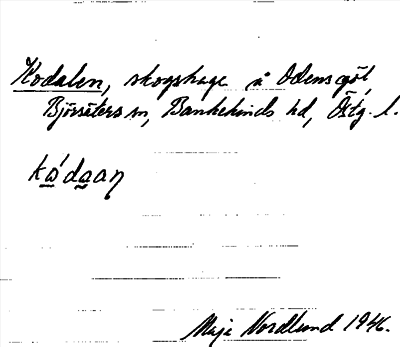 Kodalen, skogshage å Odensgöl,
Björsäters sn, Bankekinds hd, Östg. l.
kώdaan
Maja Nordlund 1946.